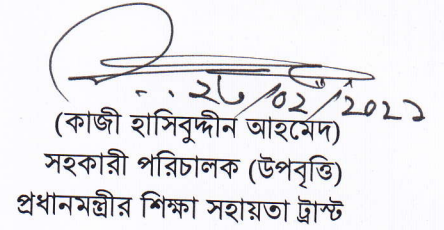 (কাজী হাসিবুদ্দীন আহমেদ)
সহকারী পরিচালক (উপবৃত্তি)
প্রধানমন্ত্রীর শিক্ষা সহায়তা ট্রাস্ট